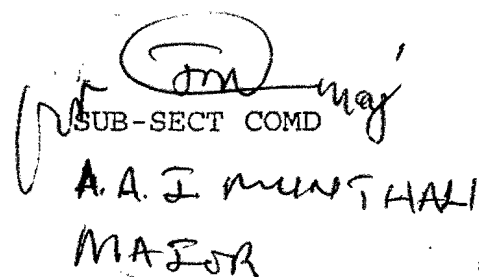 for Maj
SUB-SECT COMD
A.A.I MUNTHALI
MAJOR